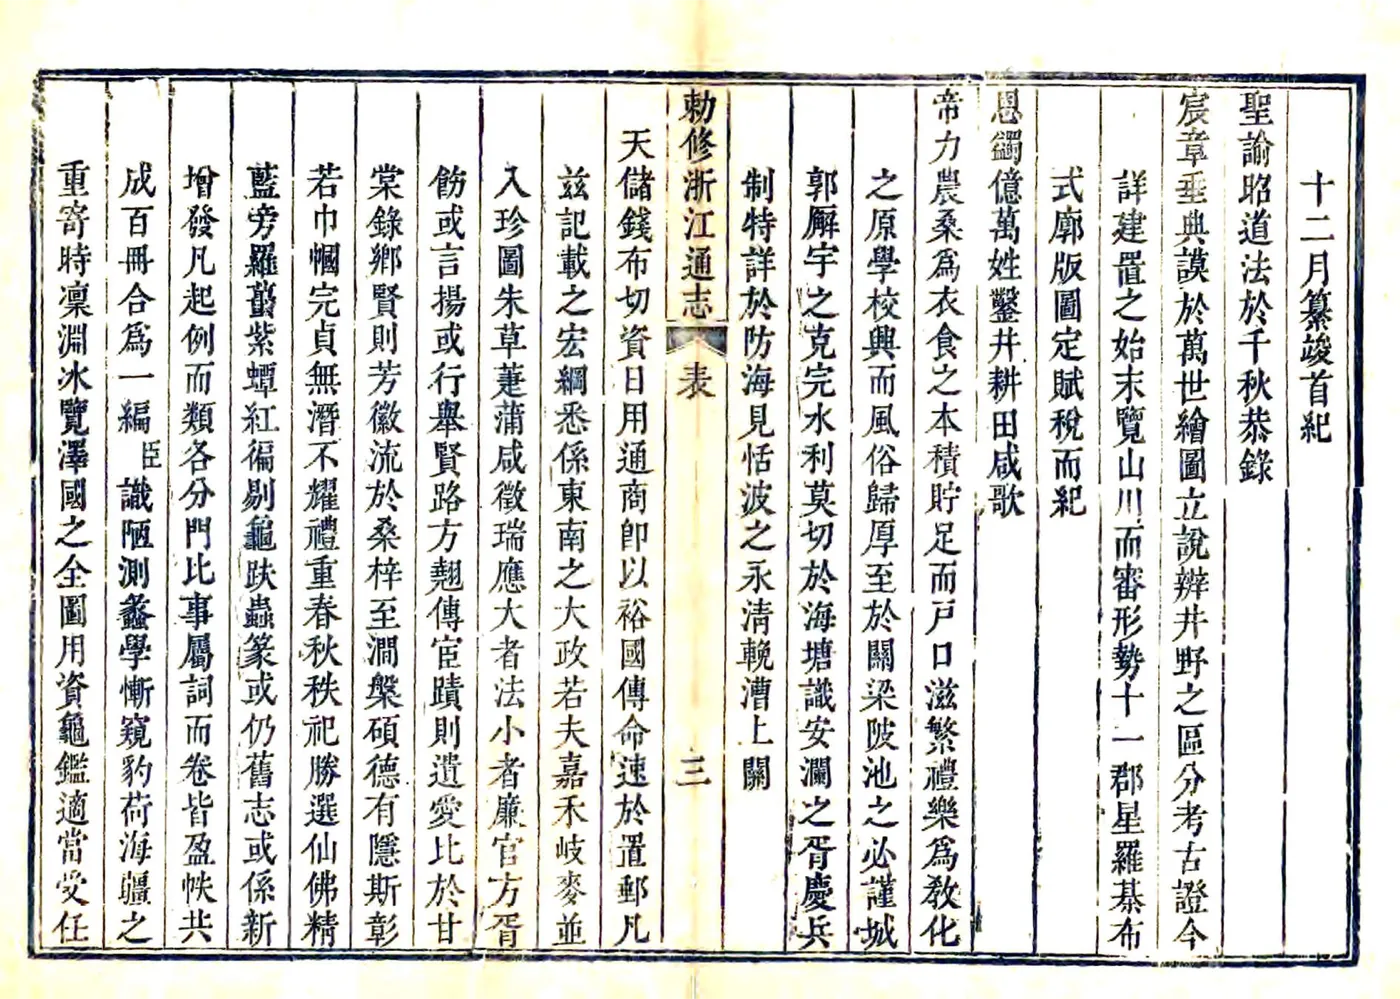 十二月纂竣首紀
聖諭昭道法於千秋恭錄
宸章垂典謨於萬世繪圖立說辨井野之區分考古證今
詳建置之始末覽山川而審形勢十一郡星羅棊布
式廓版圖定賦稅而紀
恩蠲億萬姓鑿井耕田咸歌
帝力農桑為衣食之本積貯足而戸口滋繁禮樂為敎化
之原學校興而風俗歸厚至於關梁陂池之必謹城
郭廨宇之克完水利莫切於海塘識安瀾之胥慶兵
制特詳於防海見恬波之永清輓漕上關
勅修浙江通志
表
三
天儲錢布切資日用通商卽以裕國傳命速於置郵凡
茲記載之宏綱悉係東南之大政若夫嘉禾岐麥並
入珍圖朱草萐蒲咸徵瑞應大者法小者廉官方胥
飭或言揚或行舉賢路方翹傳宦蹟則遺愛比於甘
棠錄鄉賢則芳徽流於桑梓至澗槃碩德有隱斯彰
若巾幗完貞無潛不耀禮重春秋秩祀勝選仙佛精
藍旁羅蠹紫蟫紅徧剔龜趺蟲篆或仍舊志或係新
增發凡起例而類各分門比事屬詞而卷皆盈帙共
成百冊合為一編臣識陋測蠡學慚窺豹荷海疆之
重寄時凜淵冰覽澤國之全圖用資龜鑑適當受任